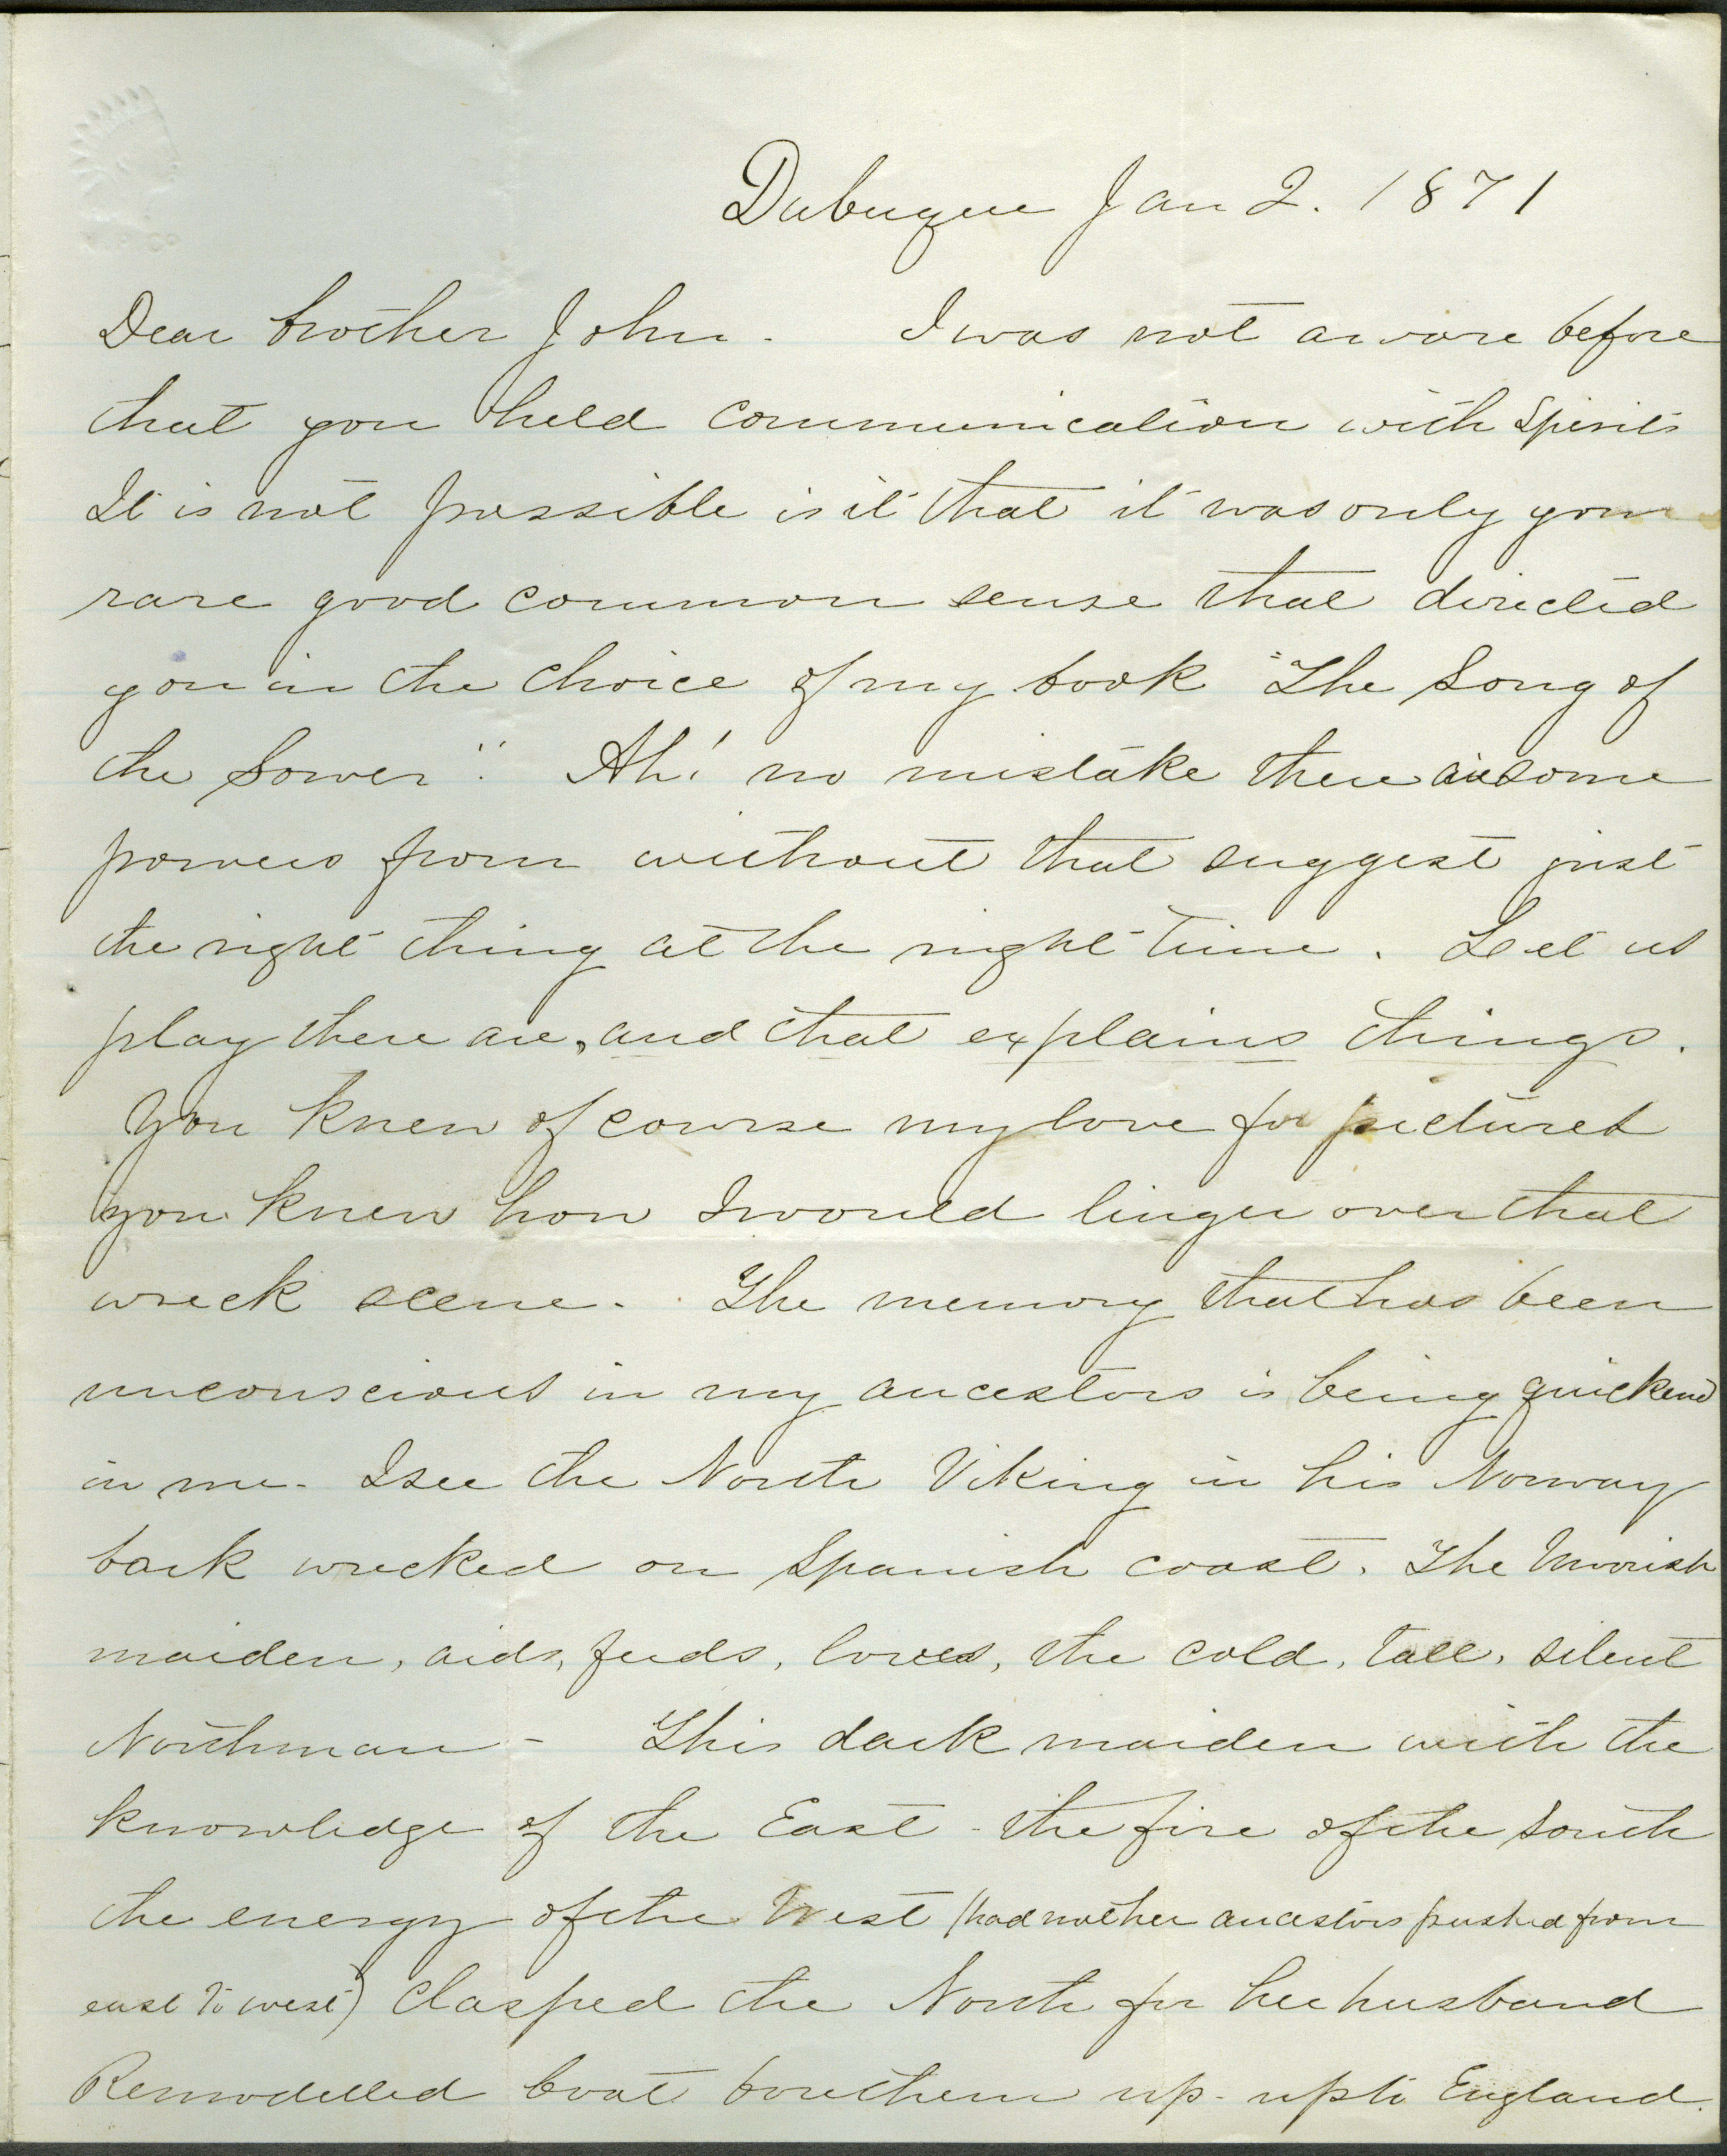 Dubuque Jan 2. 1871
Dear brother John. I was not aware before
that you held communication with Spirits
It is not possible is it that it was only your
rare good common sense that directed
you in the choice of my book "The Song of
the Sower". Ah! no mistake there are some
powers from without that suggest just
the right thing at the right time. Let us
play there are, and that explains things.
You knew of course my love for pictures
you knew how I would linger over that
wreck scene. The memory that has been
unconscious in my ancestors is being quickend
in me. I see the North Viking in his Norway
bark wrecked on Spanish coast. The Moorish
maiden, aids, feeds, loves, the cold, tall, silent
Northman - This dark maiden with the
knowledge of the East - the fire of the South
the energy of the West (had not her ancestors pushed from
east to west) clasped the North for her husband
Remodelled boat bore them up - up to England.